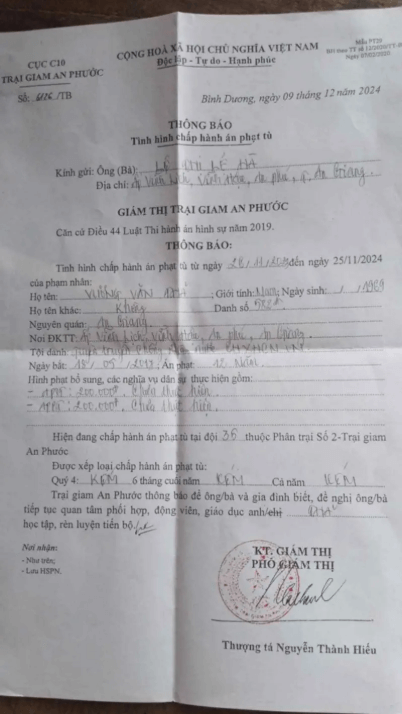 Mẫu PT20
CỤC C10
CỘNG HOÀ XÃ HỘI CHỦ NGHĨA VIỆT NAM
TRẠI GIAM AN PHƯỚC
Độc lập - Tự do - Hạnh phúc
Số: /TB
Bình Dương, ngày 09 tháng 12 năm 2024
THÔNG BÁO
Tình hình chấp hành án phạt tù
Kính gửi: Ông (Bà):
Địa chỉ: Vĩnh Hòa, An phú, An Giang.
GIÁM THỊ TRẠI GIAM AN PHƯỚC
Căn cứ Điều 44 Luật Thi hành án hình sự năm 2019.
THÔNG BÁO:
Tình hình chấp hành án phạt tù từ ngày đến ngày 25/11/2024
của phạm nhân:
Họ tên: VƯƠNG VĂN THẢ; Giới tính: Nam; Ngày sinh: / / 1969
Họ tên khác: Không Danh số
Nguyên quán: An Giang.
Nơi ĐKTT: Vĩnh Hòa, An phú, An Giang.
Tội danh
Ngày bắt: Án phạt: 12 Năm
Hình phạt bổ sung, các nghĩa vụ dân sự thực hiện gồm:
- 200.000đ, Chưa thực hiện.
- 200.000đ, Chưa thực hiện.
Hiện đang chấp hành án phạt tù tại đội 36 thuộc Phân trại Số 2-Trại giam
An Phước
Được xếp loại chấp hành án phạt tù:
Quý 4: KÉM 6 tháng cuối năm KÉM Cả năm KÉM
Trại giam An Phước thông báo để ông/bà và gia đình biết, đề nghị ông/bà
tiếp tục quan tâm phối hợp, động viên, giáo dục anh/chị THẢ
học tập, rèn luyện tiến bộ./.
Nơi nhận:
- Như trên;
- Lưu HSPN.
KT. GIÁM THỊ
PHÓ GIÁM THỊ
Thượng tá Nguyễn Thành Hiếu